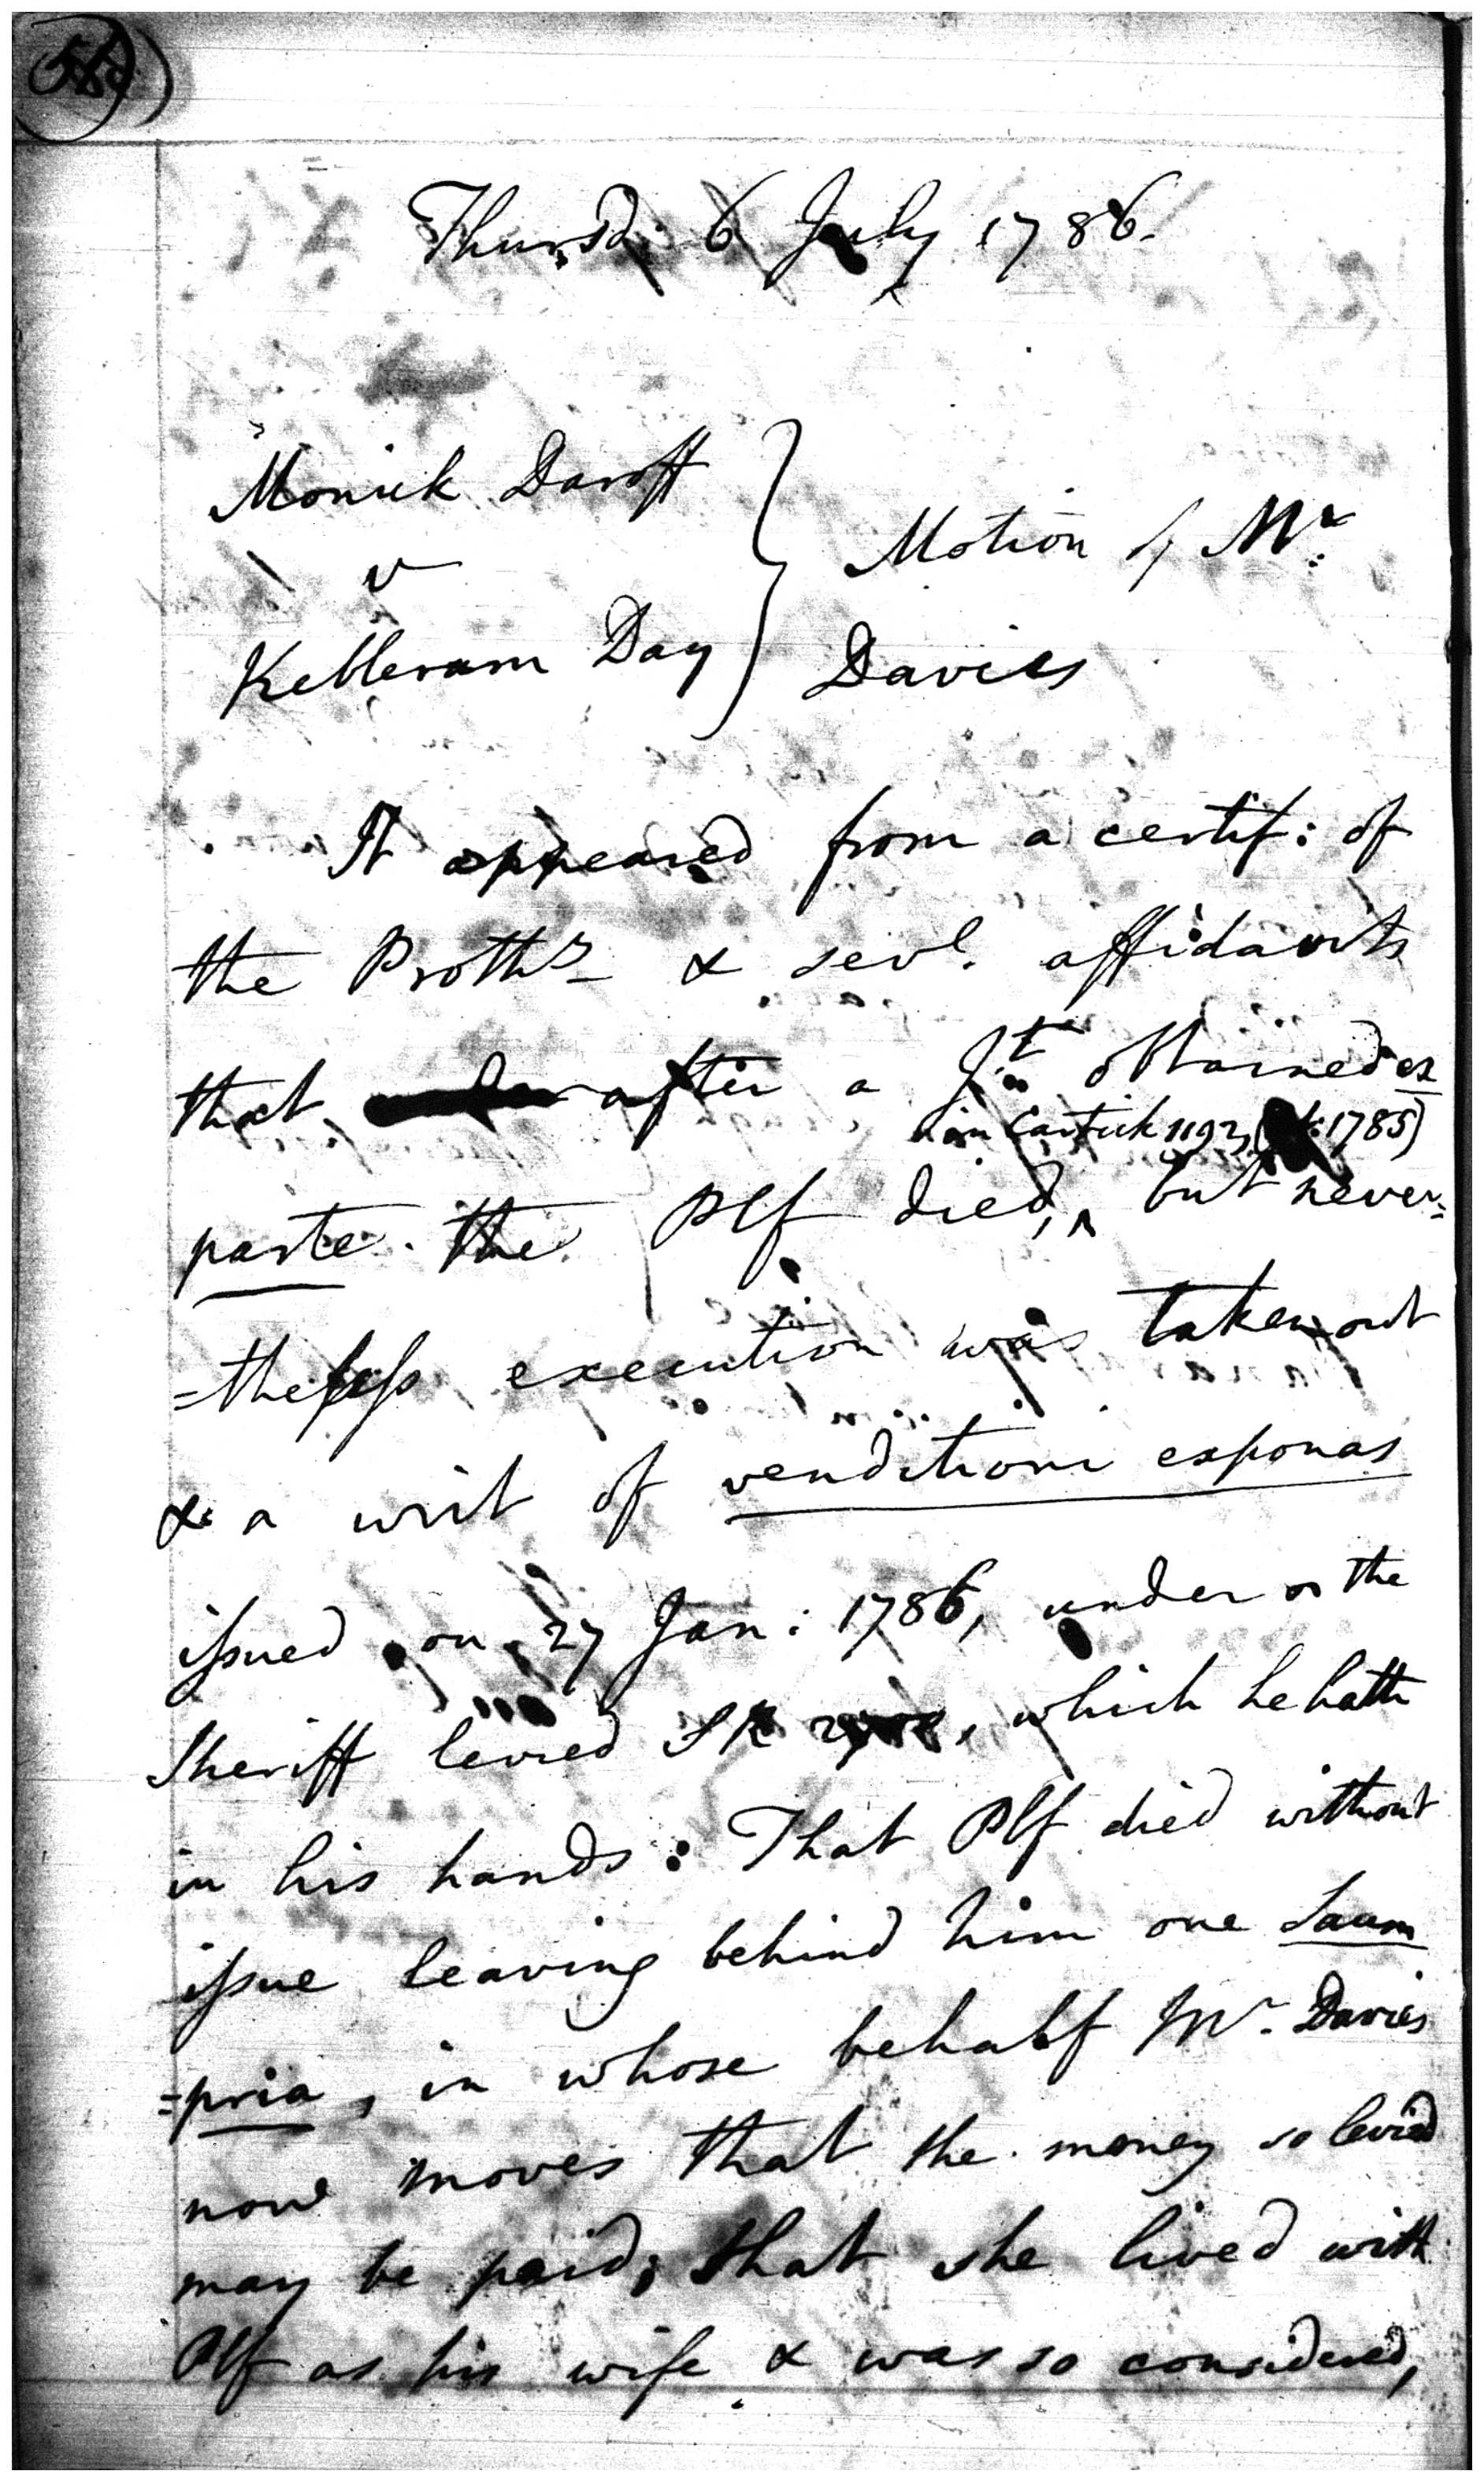 Thursd: 6 July 1786.
Monick Daroft
v
Kebleram Day
Motion by Mr:
Davies
It appeared from a certif: of
the Prothy & sevl. affidavits
that after a Jt: obtained ex
in Cartick 1192, 1785)
parte the Plf died, ^ but never=
=theless execution was taken out
& a writ of venditioni exponas
issued on 27 Jan: 1786, under the
Sheriff levied SR , which he hath
in his hands: That Plf died without
issue leaving behind him one Saum
=pria, in whose behalf Mr. Davies
now moves that the money so levied
may be paid; that she lived with
Plf as his wife & was so considered,